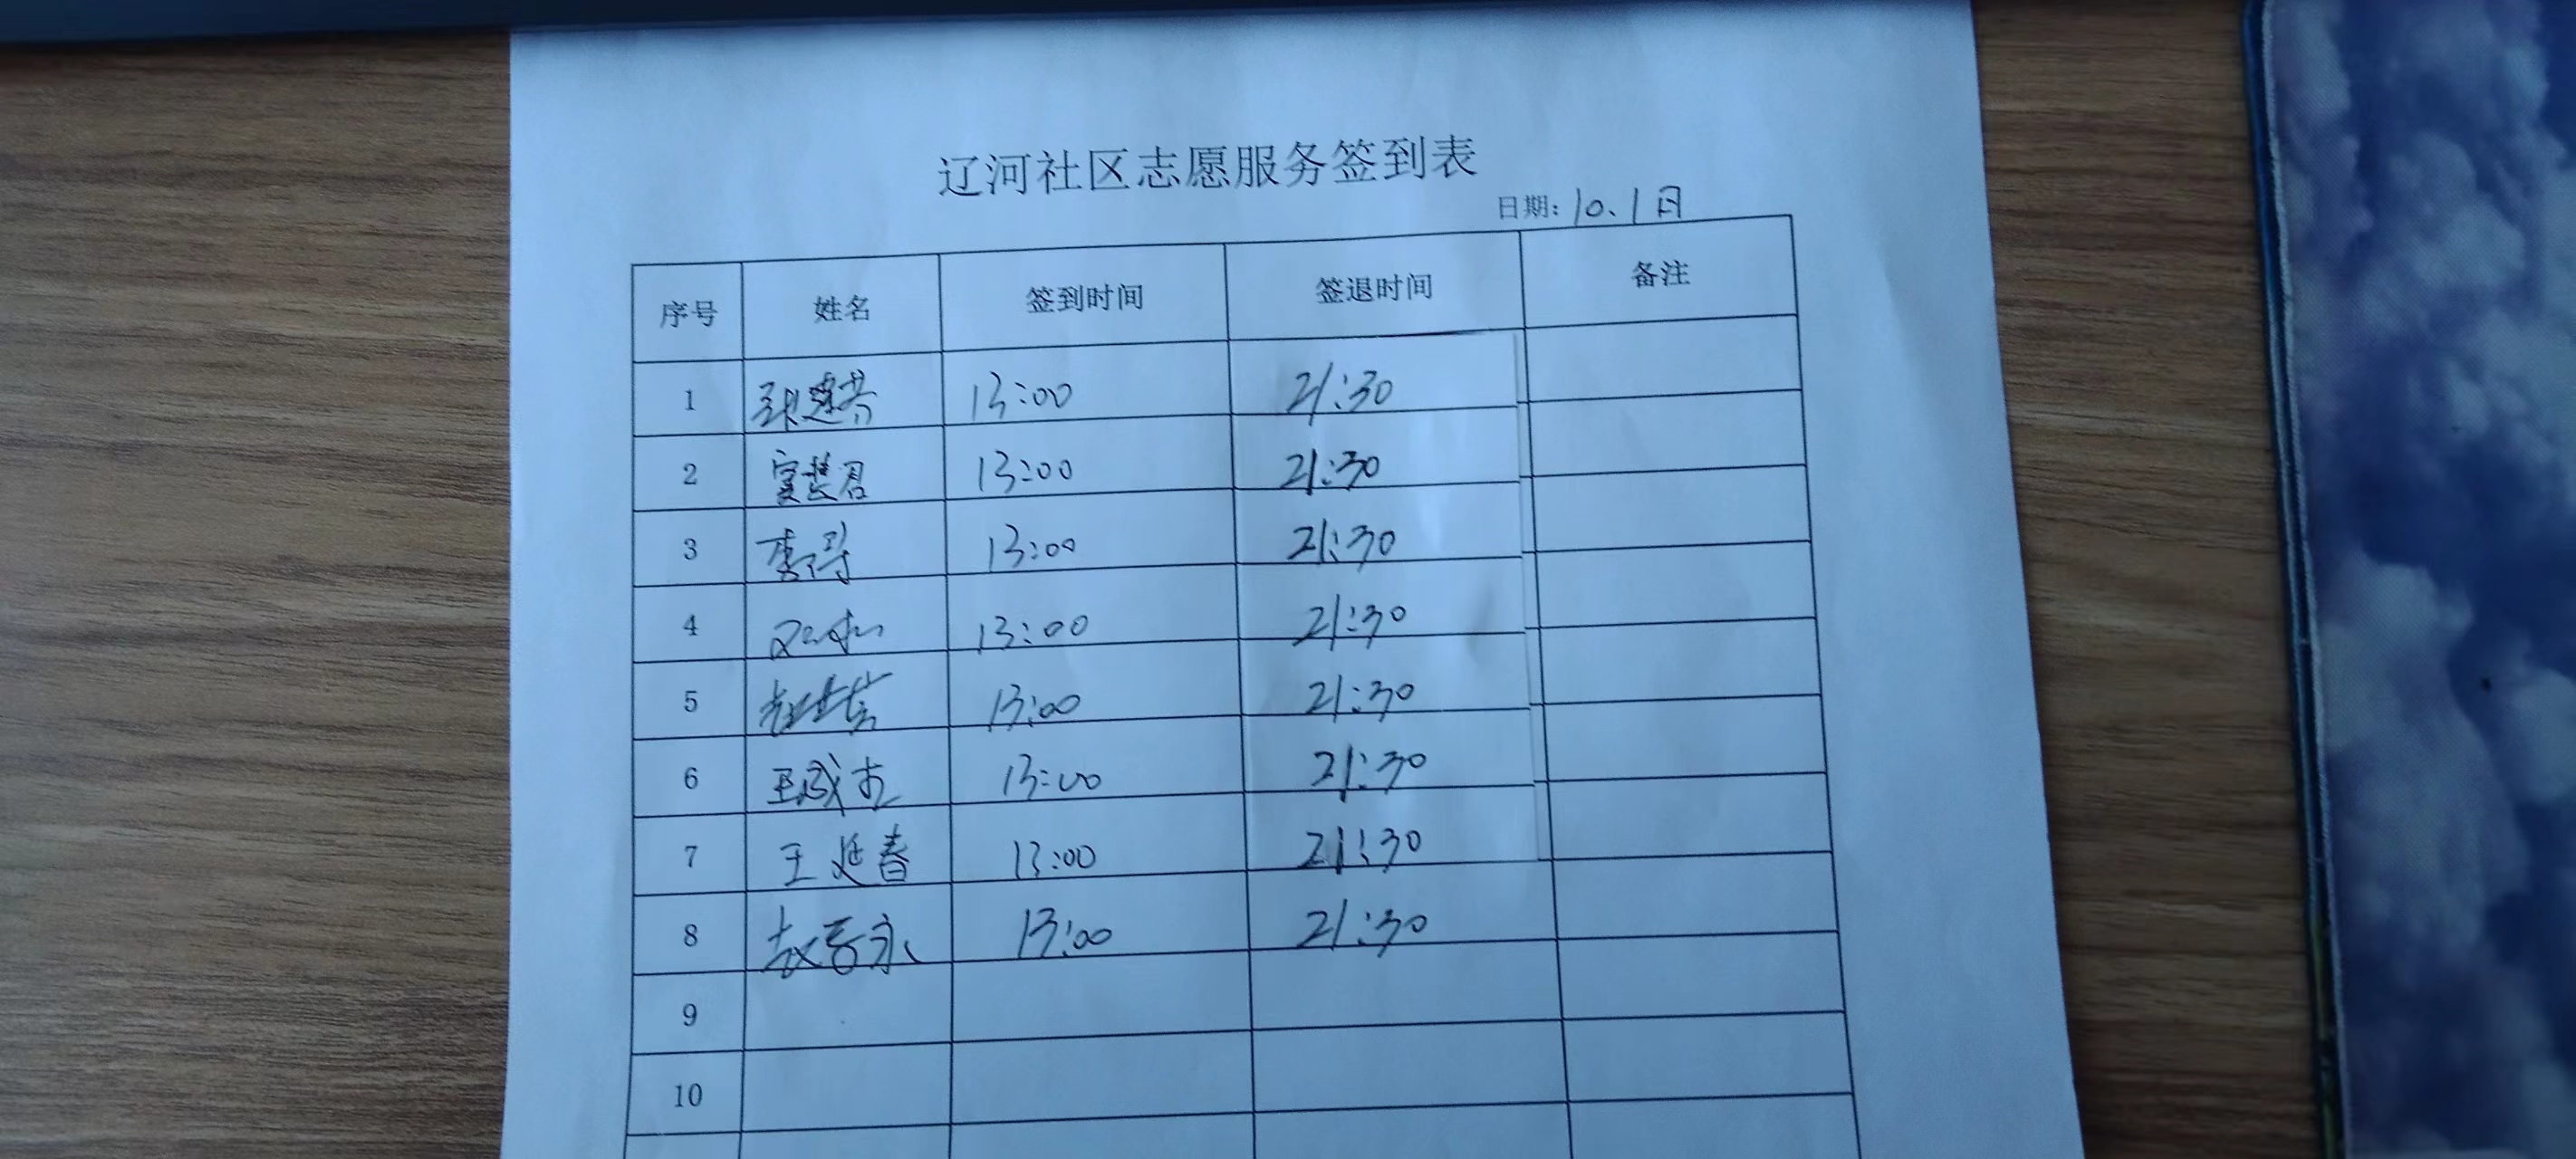 辽河社区志愿服务签到表
日期: 10.1日
序号 姓名 签到时间 签退时间 备注
1 13:00 21:30
2 13:00 21:30
3 李 13:00 21:30
4 13:00 21:30
5 13:00 21:30
6 王成 13:00 21:30
7 王延春 13:00 21:30
8 13:00 21:30
9
10